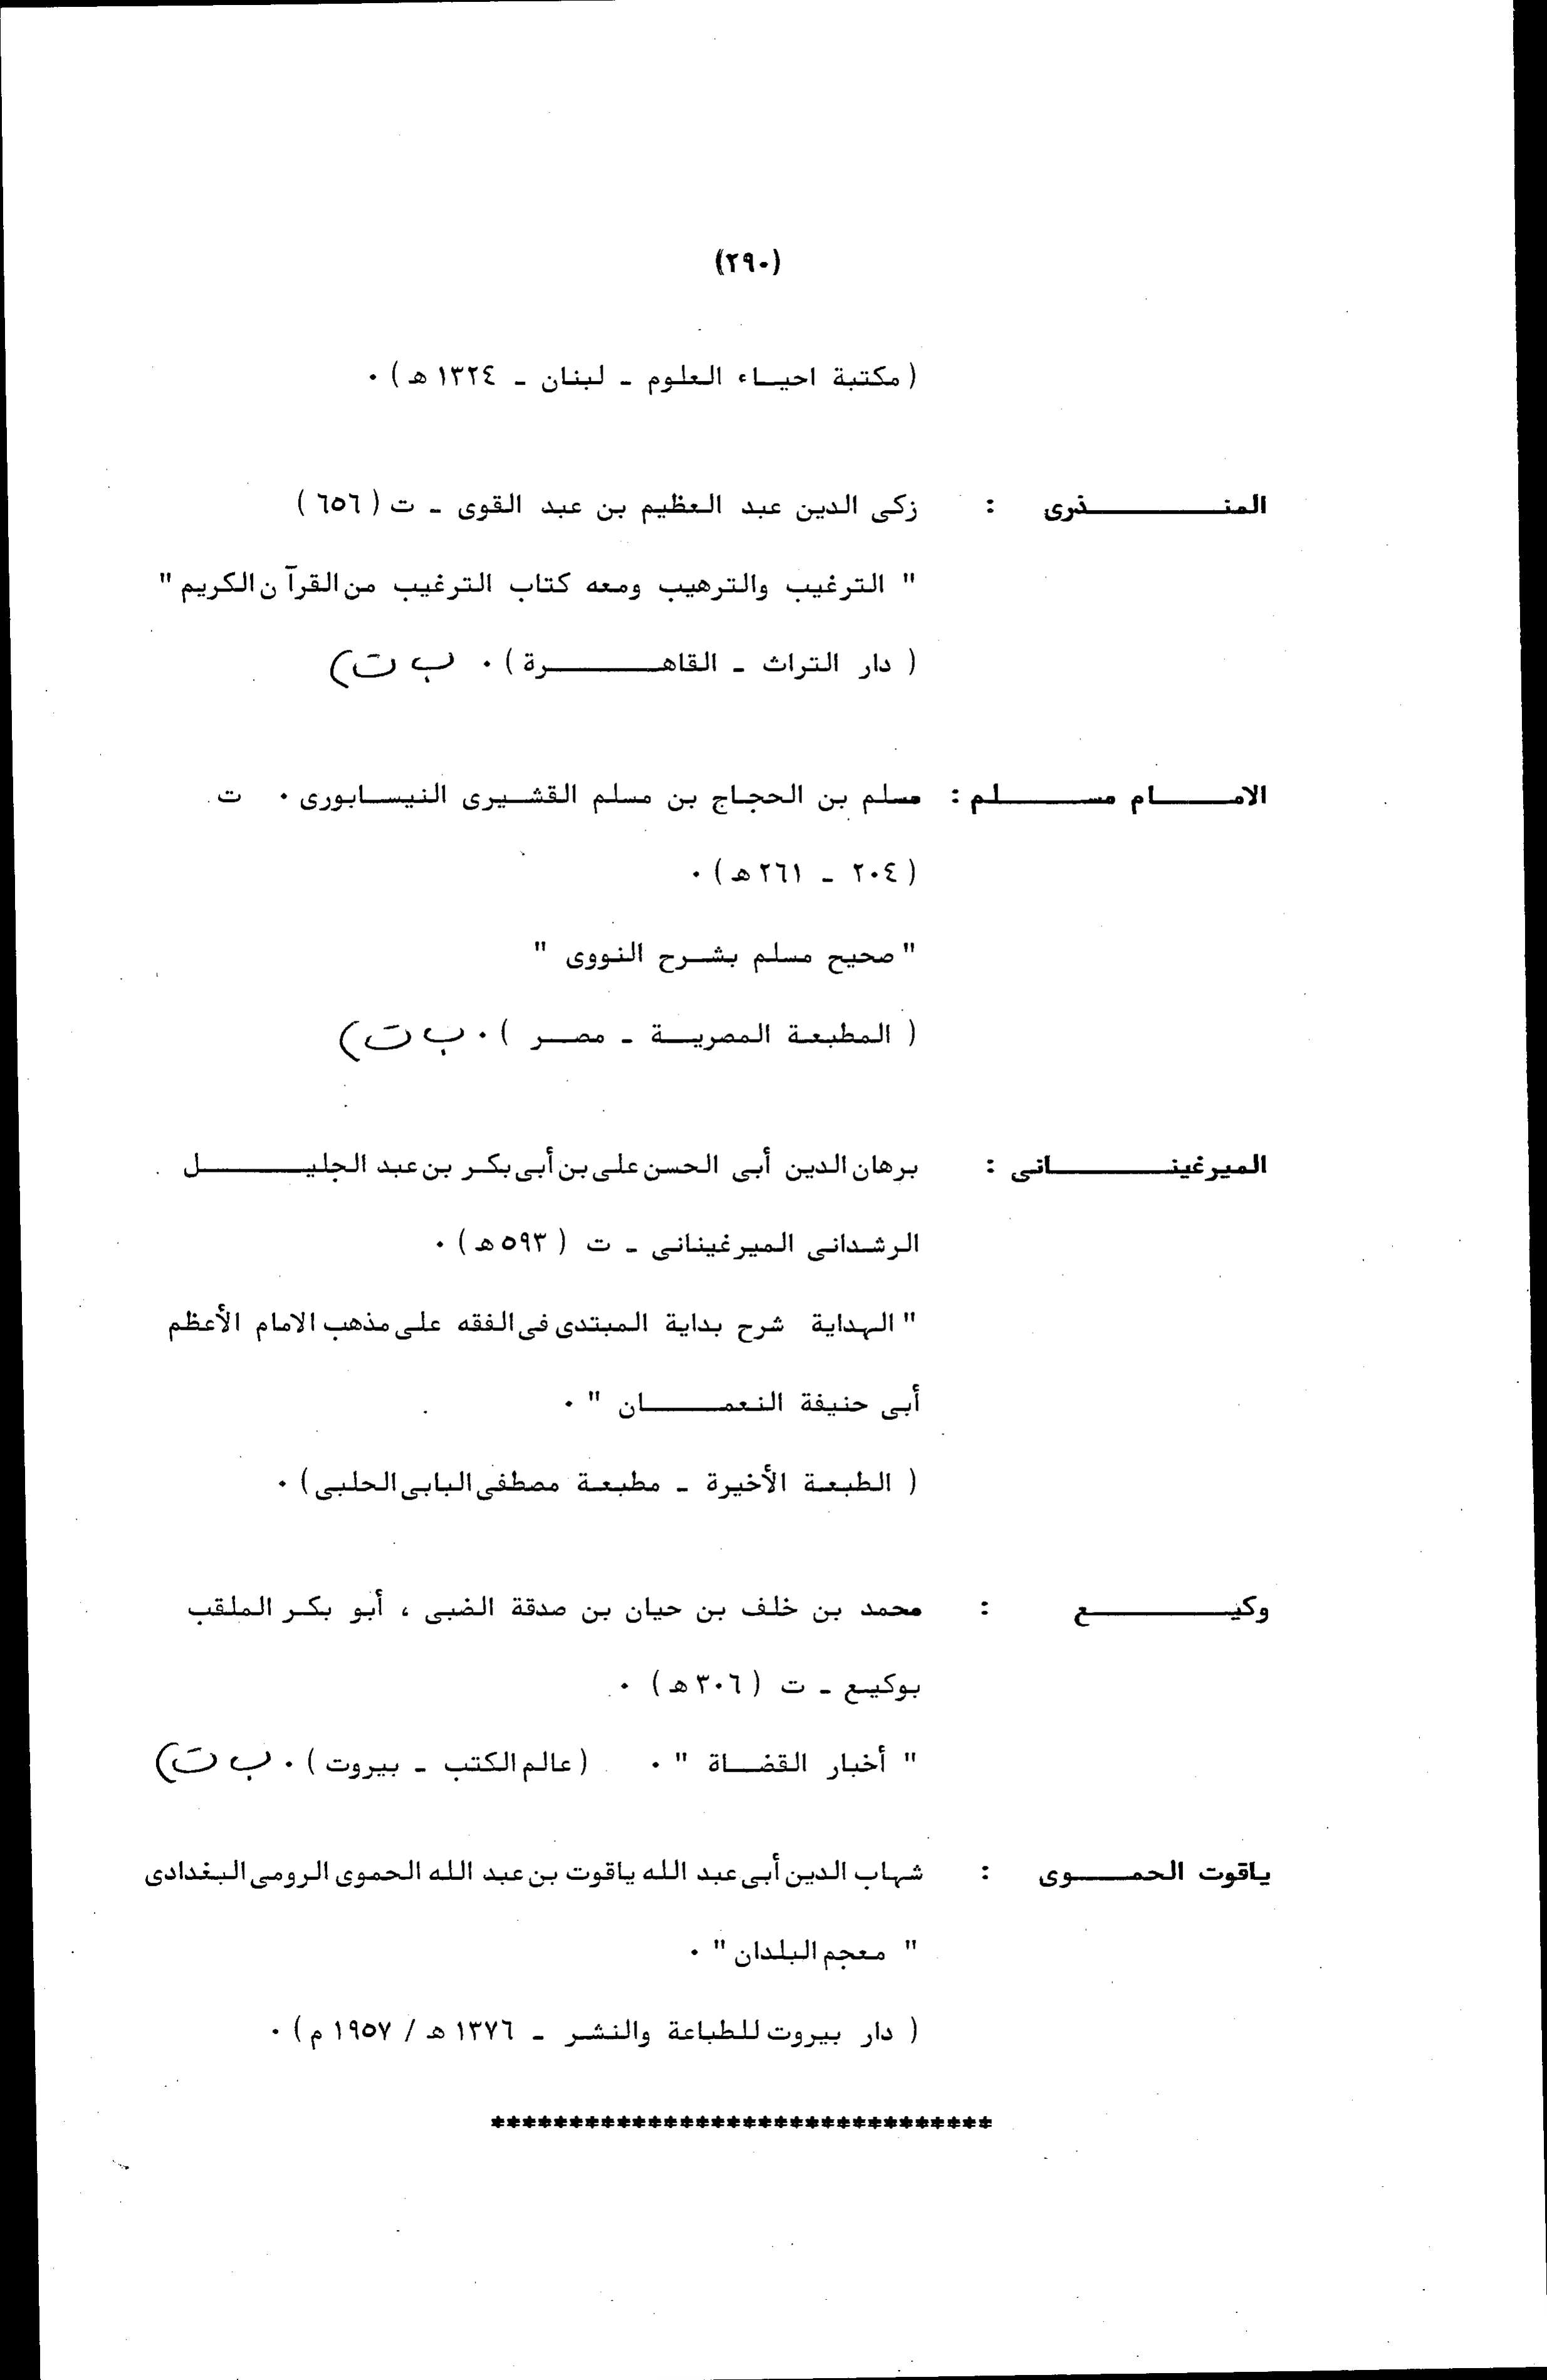 (٢٩٠)
( مكتبة احياء العلوم ـ لبنان ـ ١٣٢٤ هـ ) ٠
المنذرى : زكى الدين عبد العظيم بن عبد القوى ـ ت ( ٦٥٦ )
" الترغيب والترهيب ومعه كتاب الترغيب من القرآن الكريم "
( دار التراث ـ القاهرة ) ٠ ب ت )
الامام مسلم : مسلم بن الحجاج بن مسلم القشيرى النيسابورى ٠ ت
( ٢٠٤ ـ ٢٦١ هـ ) ٠
" صحيح مسلم بشرح النووى "
( المطبعة المصرية ـ مصر ) ٠ ب ت )
الميرغينانى : برهان الدين أبى الحسن على بن أبى بكر بن عبد الجليل
الرشدانى الميرغينانى ـ ت ( ٥٩٣ هـ ) ٠
" الهداية شرح بداية المبتدى فى الفقه على مذهب الامام الأعظم
أبى حنيفة النعمان " ٠
( الطبعة الأخيرة ـ مطبعة مصطفى البابى الحلبى ) ٠
وكيع : محمد بن خلف بن حيان بن صدقة الضبى ، أبو بكر الملقب
بوكيع ـ ت ( ٣٠٦ هـ ) ٠
" أخبار القضاة " ٠ ( عالم الكتب ـ بيروت ) ٠ ب ت )
ياقوت الحموى : شهاب الدين أبى عبد الله ياقوت بن عبد الله الحموى الرومى البغدادى
" معجم البلدان " ٠
( دار بيروت للطباعة والنشر ـ ١٣٧٦ هـ / ١٩٥٧ م ) ٠
********************************